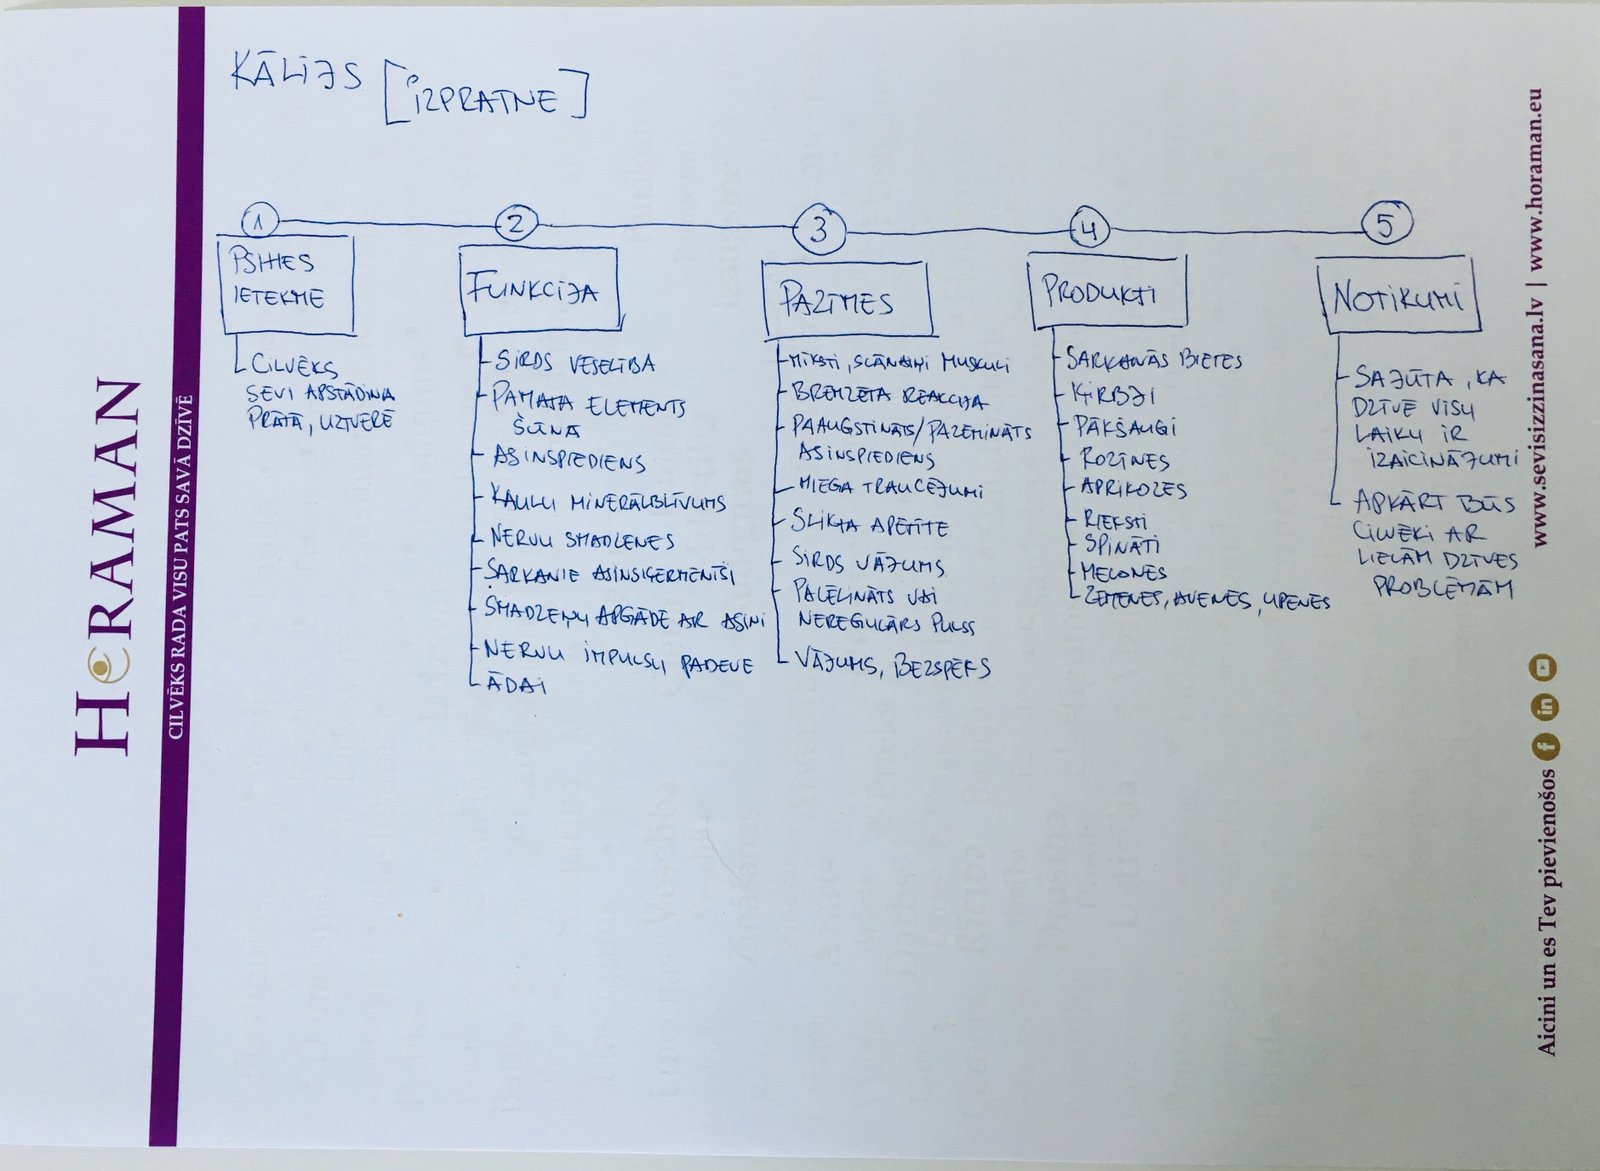 KĀLIJS [IZPRATNE]
1
PSIHES
IETEKME
CILVĒKS
SEVI APSTĀDINA
PRĀTĀ, UZTVERĒ
2
FUNKCIJA
SIRDS VESELĪBA
PAMATA ELEMENTS
ŠŪNĀ
ASINSPIEDIENS
KAULU MINERĀLBLĪVUMS
NERVU SMADZENES
SARKANIE ASINSĶERMENĪŠI
SMADZEŅU APGĀDE AR ASINI
NERVU IMPULSU PADEVE
ĀDAI
3
PAZĪMES
MĪKSTI, MUSKUĻI
BREMZĒTA REAKCIJA
PAAUGSTINĀTS/PAZEMINĀTS
ASINSPIEDIENS
MIEGA TRAUCĒJUMI
SLIKTA APETĪTE
SIRDS VĀJUMS
PALĒLINĀTS VAI
NEREGULĀRS PULSS
VĀJUMS, BEZSPĒKS
4
PRODUKTI
SARKANĀS BIETES
ĶIRBJI
PĀKŠAUGI
ROZĪNES
APRIKOZES
RIEKSTI
SPINĀTI
MELONES
ZEMENES, AVENES, UPENES
5
NOTIKUMI
SAJŪTA, KA
DZĪVĒ VISU
LAIKU IR
IZAICINĀJUMI
APKĀRT BŪS
CILVĒKI AR
LIELĀM DZĪVES
PROBLĒMĀM
HORAMAN
CILVĒKS RADA VISU PATS SAVĀ DZĪVĒ
Aicini un es Tev pievienošos
www.sevisizzinasana.lv | www.horaman.eu